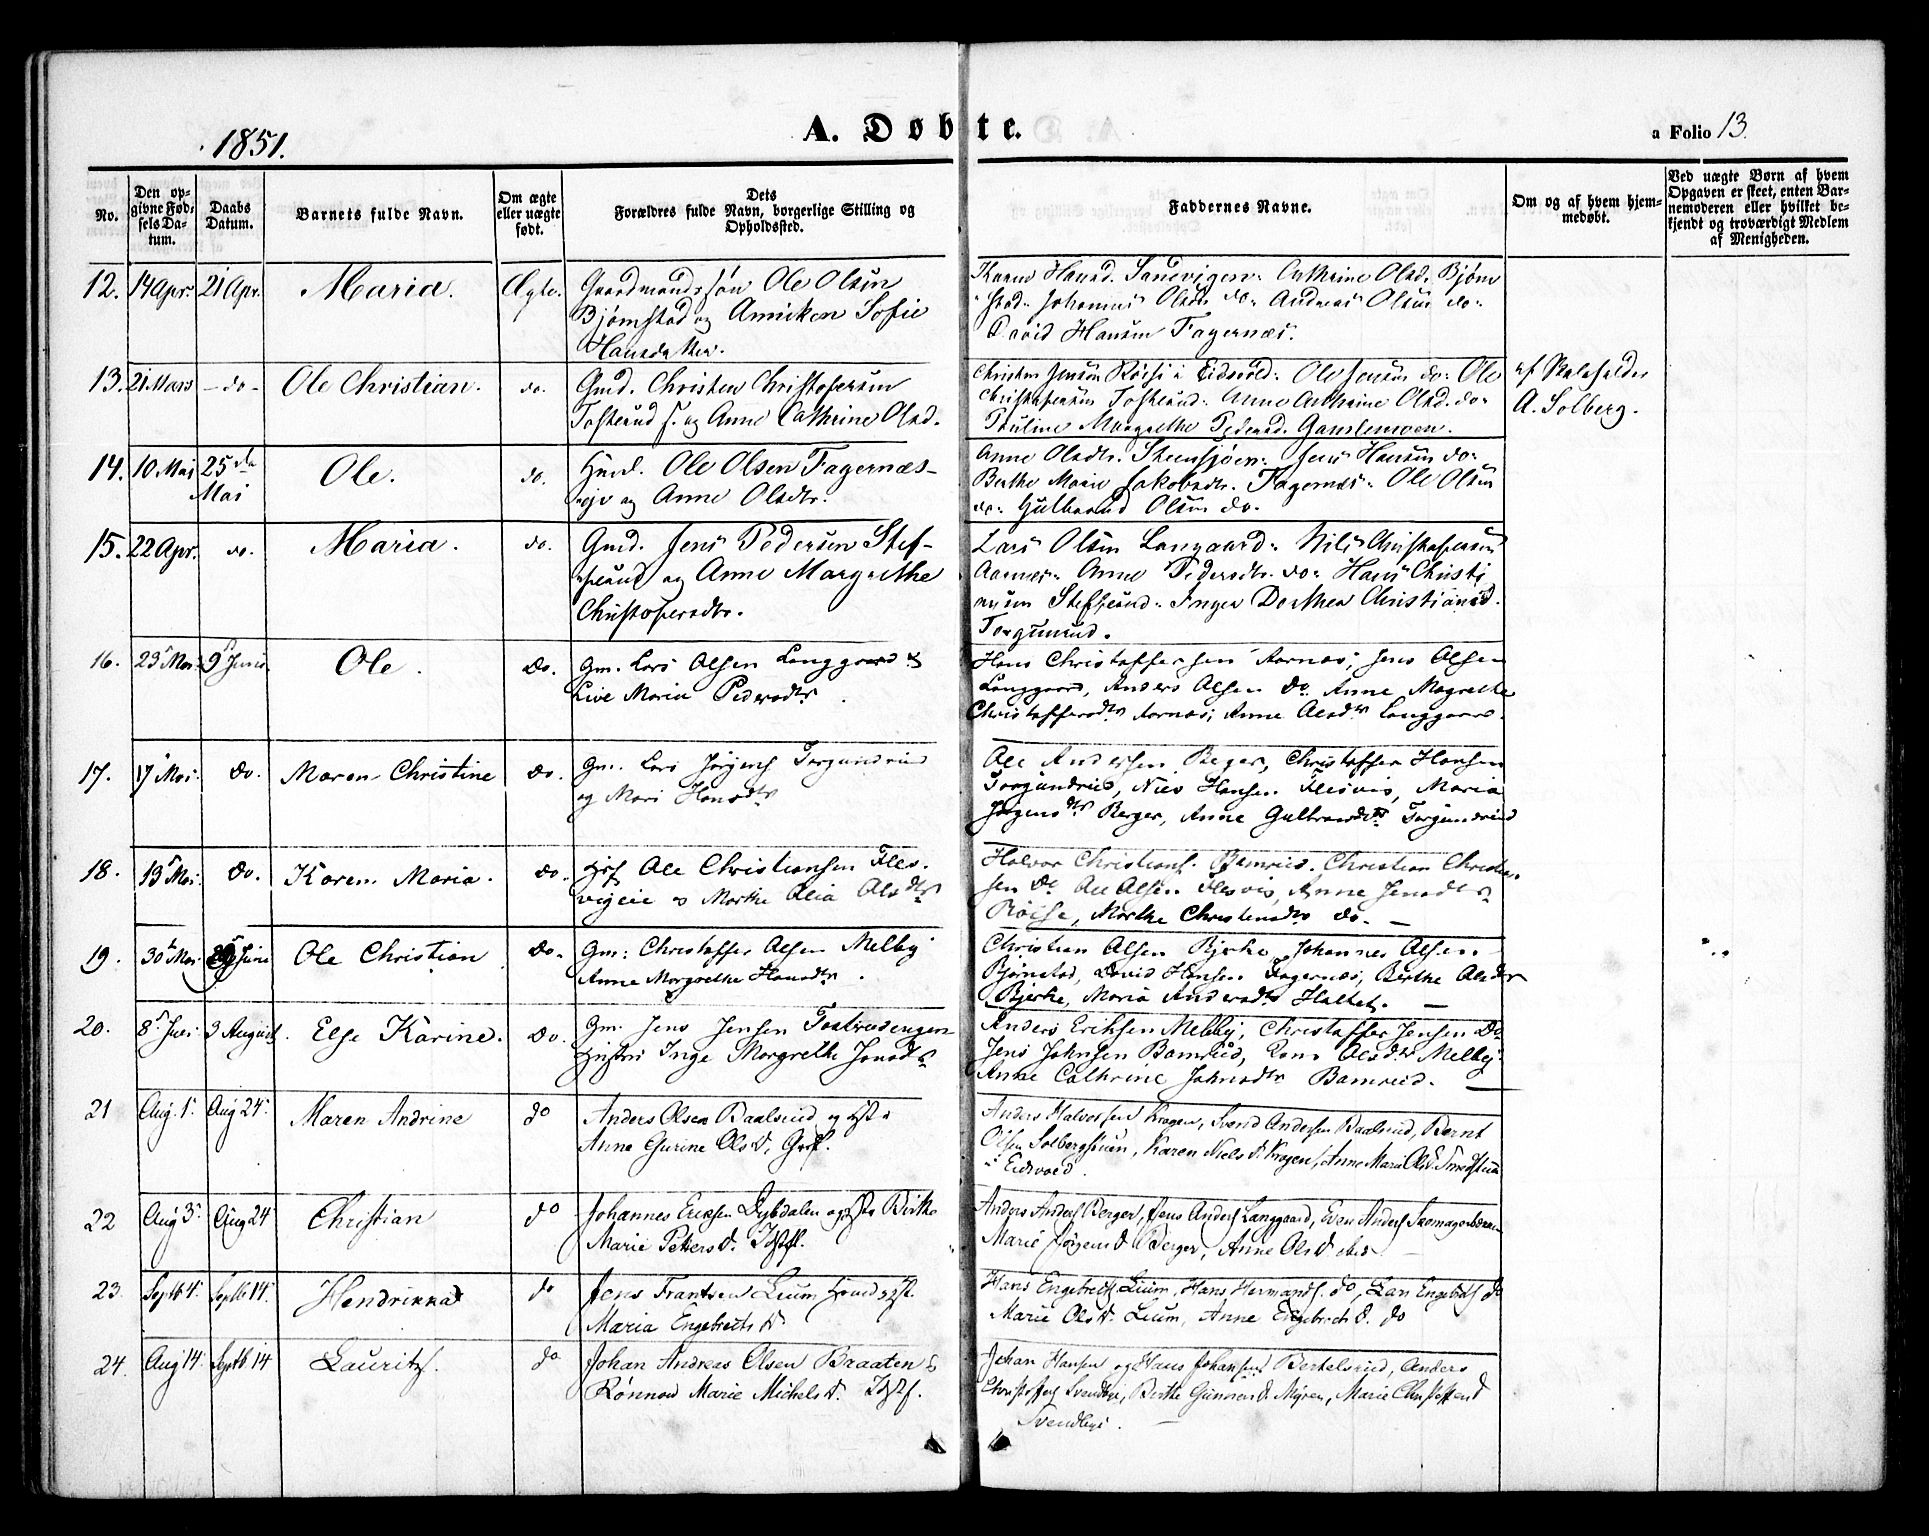 1851.
A. Døbte.
a Folio 13.
No.
Den op-
givne Fød-
sels Da-
tum.
Daabs
Datum.
Barnets fulde Navn.
Om ægte
eller uægte
født.
Dets
Forældres fulde Navn, borgerlige Stilling og
Opholdssted.
Faddernes Navne.
Om og af hvem hjem-
medøbt.
Ved uægte Børn af hvem
Opgaven er skeet, enten Bar-
nemoderen eller hvilket be-
kjendt og troværdigt Medlem
af Menigheden.
12. 14 Apr. 21 Apr. Maria. Ægte. Gaardmandssøn Ole Olsen
Bjørnstad og Anniken Sofie
Hansdatter.
Karen Hansd. Sandvigen. Cathrine Olsd. Bjørn
stad. Johannes Olsen do. Andreas Olsen do.
David Hansen Fagernæs.
13. 21 Mars - do - Ole Christian. do. Gmd. Christen Christofersen
og Anne Cathrine Olsd.
Christen Jensen Røise i Eidsvold. Ole Jensen do. Ole
Christofersen Anne Cathrine Olsd. do.
Pauline Margrethe Pedersd.
af
A. Solberg.
14. 10 Mai 25de
Mai Ole. do. Hmd. Ole Olsen Fagernæs-
eje og Anne Olsdtr.
Anne Olsdtr. Steensjøen. Jens Hansen do.
Berthe Marie Jakobsdtr. Fagernæs. Ole Olsen
do. Gulbrand Olsen do.
15. 22 Apr. do. Maria. do. Gmd. Jens Pedersen Stef-
og Anne Margrethe
Christofersdtr.
Lars Olsen Langaard. Nils Christofersen
Aarnes. Anne Pedersdtr. do. Hans Christi
ansen Inger Dorthea Christiansd.
Torgunrud.
16. 23 Mai 9 Juni Ole. Do. Gm. Lars Olsen Langgaard &
Live Maria Pedersdtr.
Hans Christoffersen Aarnæs, Jens Olsen
Langgaard, Anders Olsen Do. Anne Magrethe
Christoffersdtr Aarnæs, Anne Olsdtr Langgaard.
17. 17 Mai Do. Maren Christine Do. Gm. Lars Jørgens Torgundrud
og Mari Hansdtr
Ole Andersen Berger, Christoffer Hansen
Torgundrud, Niels Hansen Flesvig, Maria
Jørgensdtr Berger, Anne Gulbrandsdtr Torgundrud
18. 13 Mai. Do. Karen Maria. Do. Ole Christiansen Fles-
vigeie & Marthe Olsdtr
Halvor Christians. Bamrud. Christian Christian-
sen Do. Ole Olsen Flesvig, Anne Jensdtr
Røise, Marthe Christensdtr do. -
19. 30 Mai Juni Ole Christian Do. Gm: Christoffer Olsen Melby
Anne Margrethe Hansdtr.
Christian Olsen Bjerke, Johannes Olsen
Bjørnstad, David Hansen Fagernæs, Berthe Olsdtr
Bjerke, Maria Andersdtr Haltet. -
20. 8 Juni 3 August. Else Karine. Do. Gm. Jens Jensen
Hustru Inge Margrethe Jensdtr
Anders Eriksen Melby, Christoffer Jensen Do
Jens Johnsen Bamrud, Olsdtr Melby
Anne Cathrine Johnsdtr Bamrud. -
21 Aug. 1. Aug 24. Maren Andrine do Anders Olsen Baalsrud og
Anne Gurine Olsd.
Anders Halvorsen Kragen, Svend Andersen Baalsrud, Bernt
Olsen Solbergstuen, Karen Nielsd. Kragen, Anne Maria Olsd.
i Eidsvold.
22 Aug 3. Aug 24 Christian do Johannes Ericksen Dybdalen og Birthe
Marie Petersd.
Anders Anders Berger, Jens Anders Langgaard, Even Anders
Marie Jørgensd Berger, Anne Olsd
23. Septb 4. Septb 14. Hendrikka do Jens Frantzen Lium
Maria Engebretsd.
Hans Engebrets Lium, Hans Hermands. do, Lars Engebrets do
Marie Olsd. Lium, Anne Engebrechtsd. do
24. Aug 14. Septb 14 Lauritz. do Johan Andreas Olsen Braaten &
Rønnow Marie Michelsd.
Johan Hansen og Hans Johansen Bertelsrud, Anders
Christoffers Svendbye, Birthe Gunnersd. Myren, Marie Christoffersd
Svendbye. -